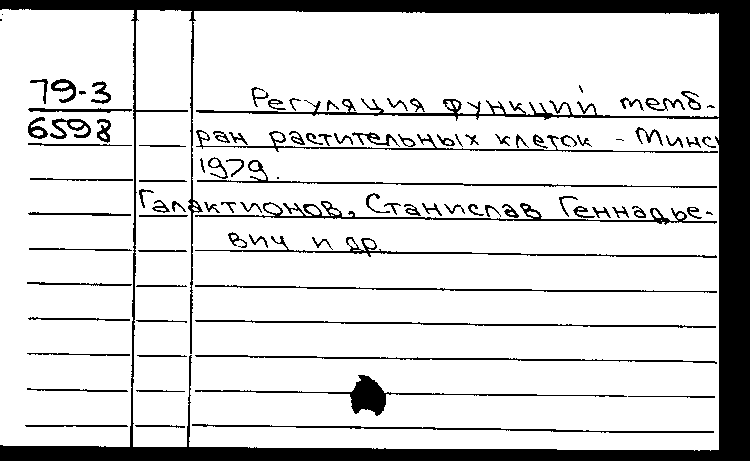 79-3
6598
Регуляция функций мемб-
ран растительных клеток - Минск
1979.
Галактионов, Станислав Геннадье-
вич и др.